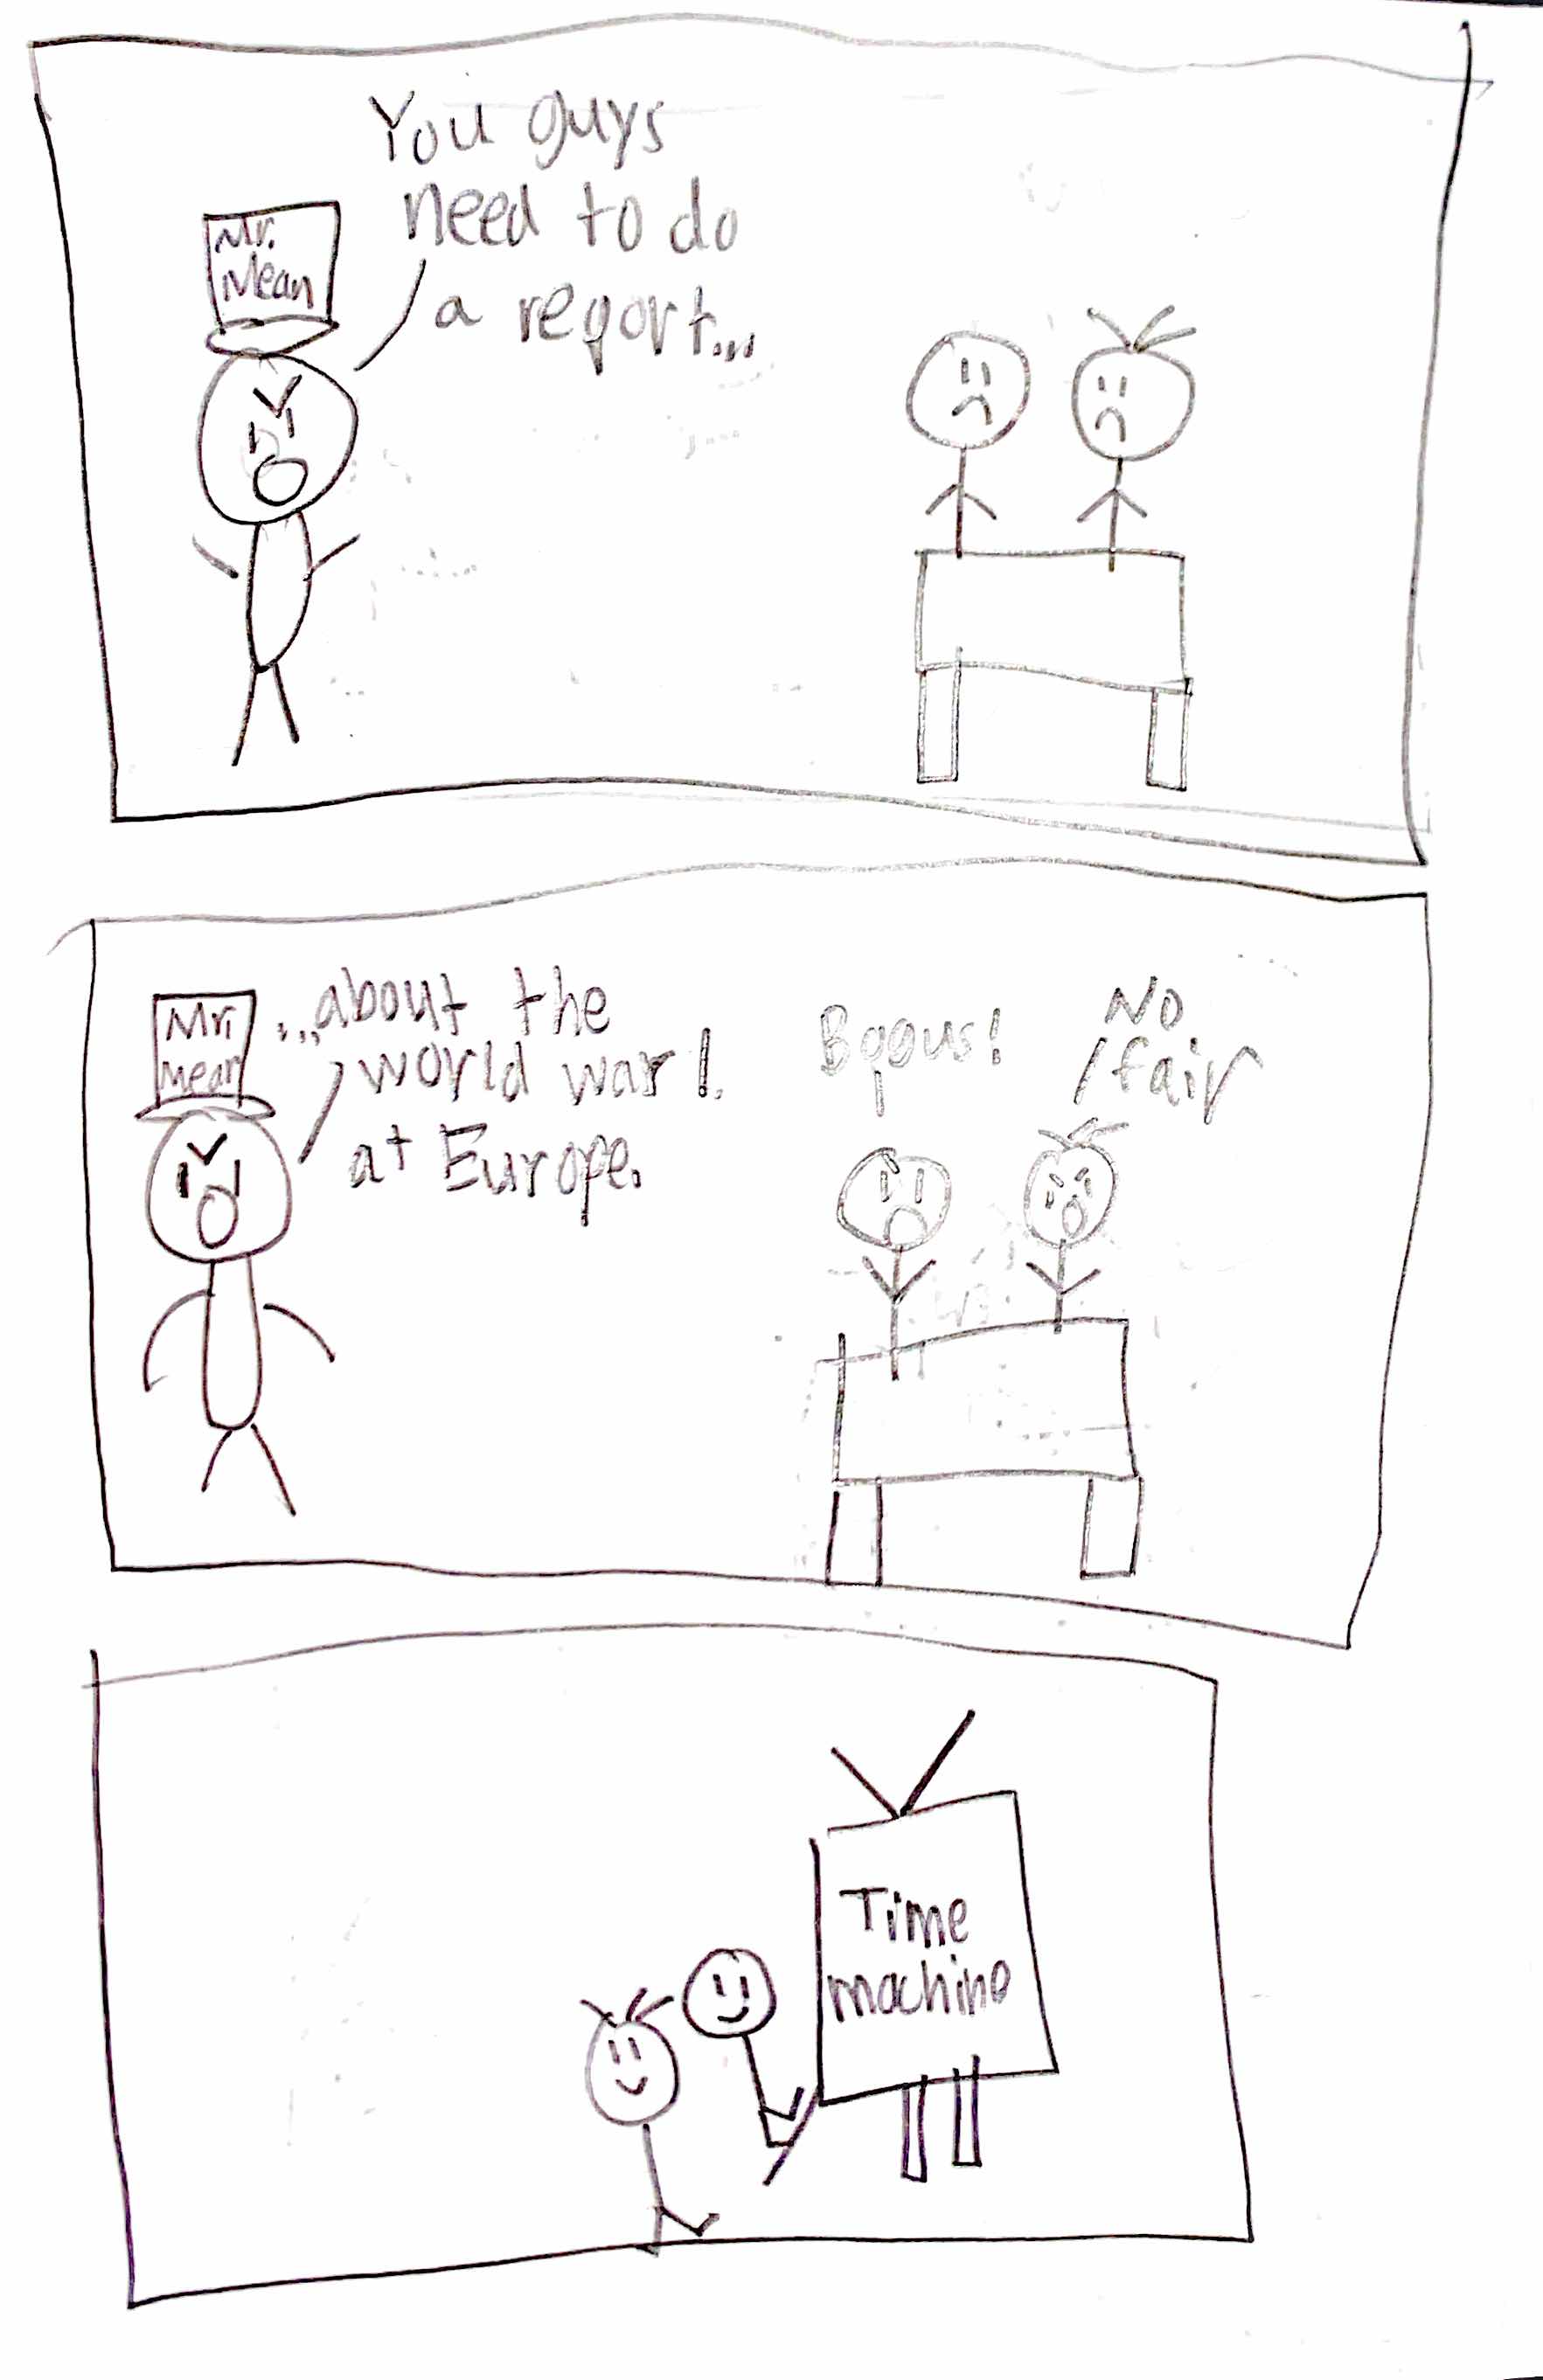 You guys
need to do
a report...
Mr.
Mean
...about the
world war 1.
at Europe.
Mr.
Mean
Bogus!
No
fair
Time
machine